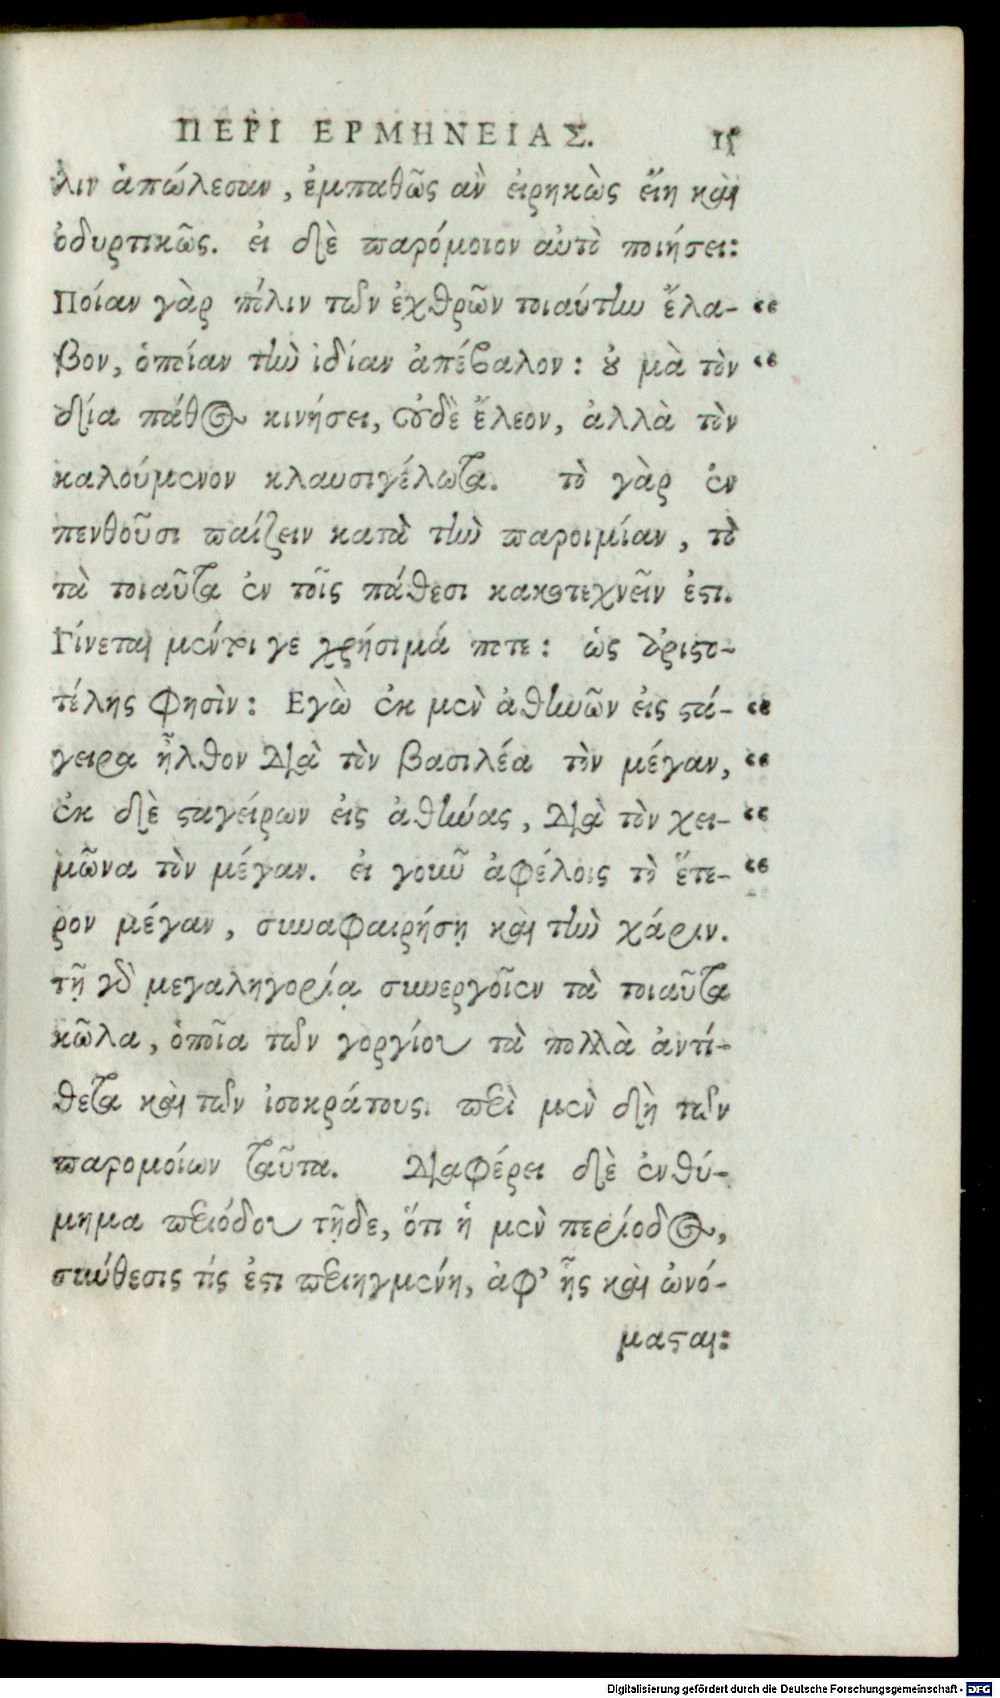 ΠΕΡΙ ΕΡΜΗΝΕΙΑΣ. 15
λιν ἀπώλεσαν, ἐμπαθῶς ἂν εἰρηκὼς εἴη καὶ
ὀδυρτικῶς. εἰ δὲ παρόμοιον αὐτὸ ποιήσει:
Ποίαν γὰρ πόλιν τῶν ἐχθρῶν τοιαύτην ἔλα-
βον, ὁποίαν τὴν ἰδίαν ἀπέβαλον: οὐ μὰ τὸν
δία πάθος κινήσει, οὐδὲ ἔλεον, ἀλλὰ τὸν
καλούμενον κλαυσιγέλωτα. τὸ γὰρ ἐν
πενθοῦσι παίζειν κατὰ τὴν παροιμίαν, τὸ
τὰ τοιαῦτα ἐν τοῖς πάθεσι κακοτεχνεῖν ἐστι.
Γίνεται μέντοι γε χρήσιμά ποτε: ὡς ἀριστο-
τέλης φησὶν: Εγὼ ἐκ μὲν ἀθηνῶν εἰς στά-
γειρα ἦλθον διὰ τὸν βασιλέα τὸν μέγαν,
ἐκ δὲ σταγείρων εἰς ἀθήνας, διὰ τὸν χει-
μῶνα τὸν μέγαν. εἰ γοῦν ἀφέλοις τὸ ἕτε-
ρον μέγαν, συναφαιρήσῃ καὶ τὴν χάριν.
τῇ γὰρ μεγαληγορίᾳ συνεργοῖεν τὰ τοιαῦτα
κῶλα, ὁποῖα τῶν γοργίου τὰ πολλὰ ἀντί-
θετα καὶ τῶν ἰσοκράτους. περὶ μὲν δὴ τῶν
παρομοίων ταῦτα. Διαφέρει δὲ ἐνθύ-
μημα περιόδου τῇδε, ὅτι ἡ μὲν περίοδος,
σύνθεσις τίς ἐστι περιηγμένη, ἀφ' ἧς καὶ ὠνό-
μασται:
Digitalisierung gefördert durch die Deutsche Forschungsgemeinschaft - DFG